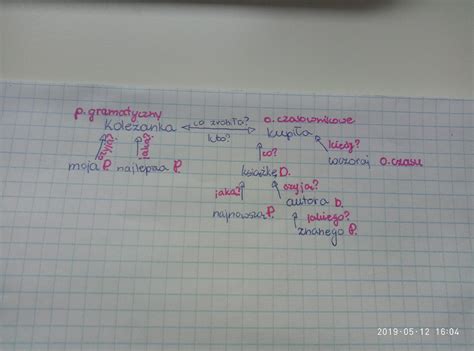 p. gramatyczny
koleżanka co zrobiła? kto? o. czasownikowe kupiła
czyja? jaka? co? kiedy?
moja P. najlepsza P. wczoraj O. czasu
książkę D.
jaka? czyją?
najnowszą P. autora D.
jakiego?
znanego P.
2019-05-12 16:04